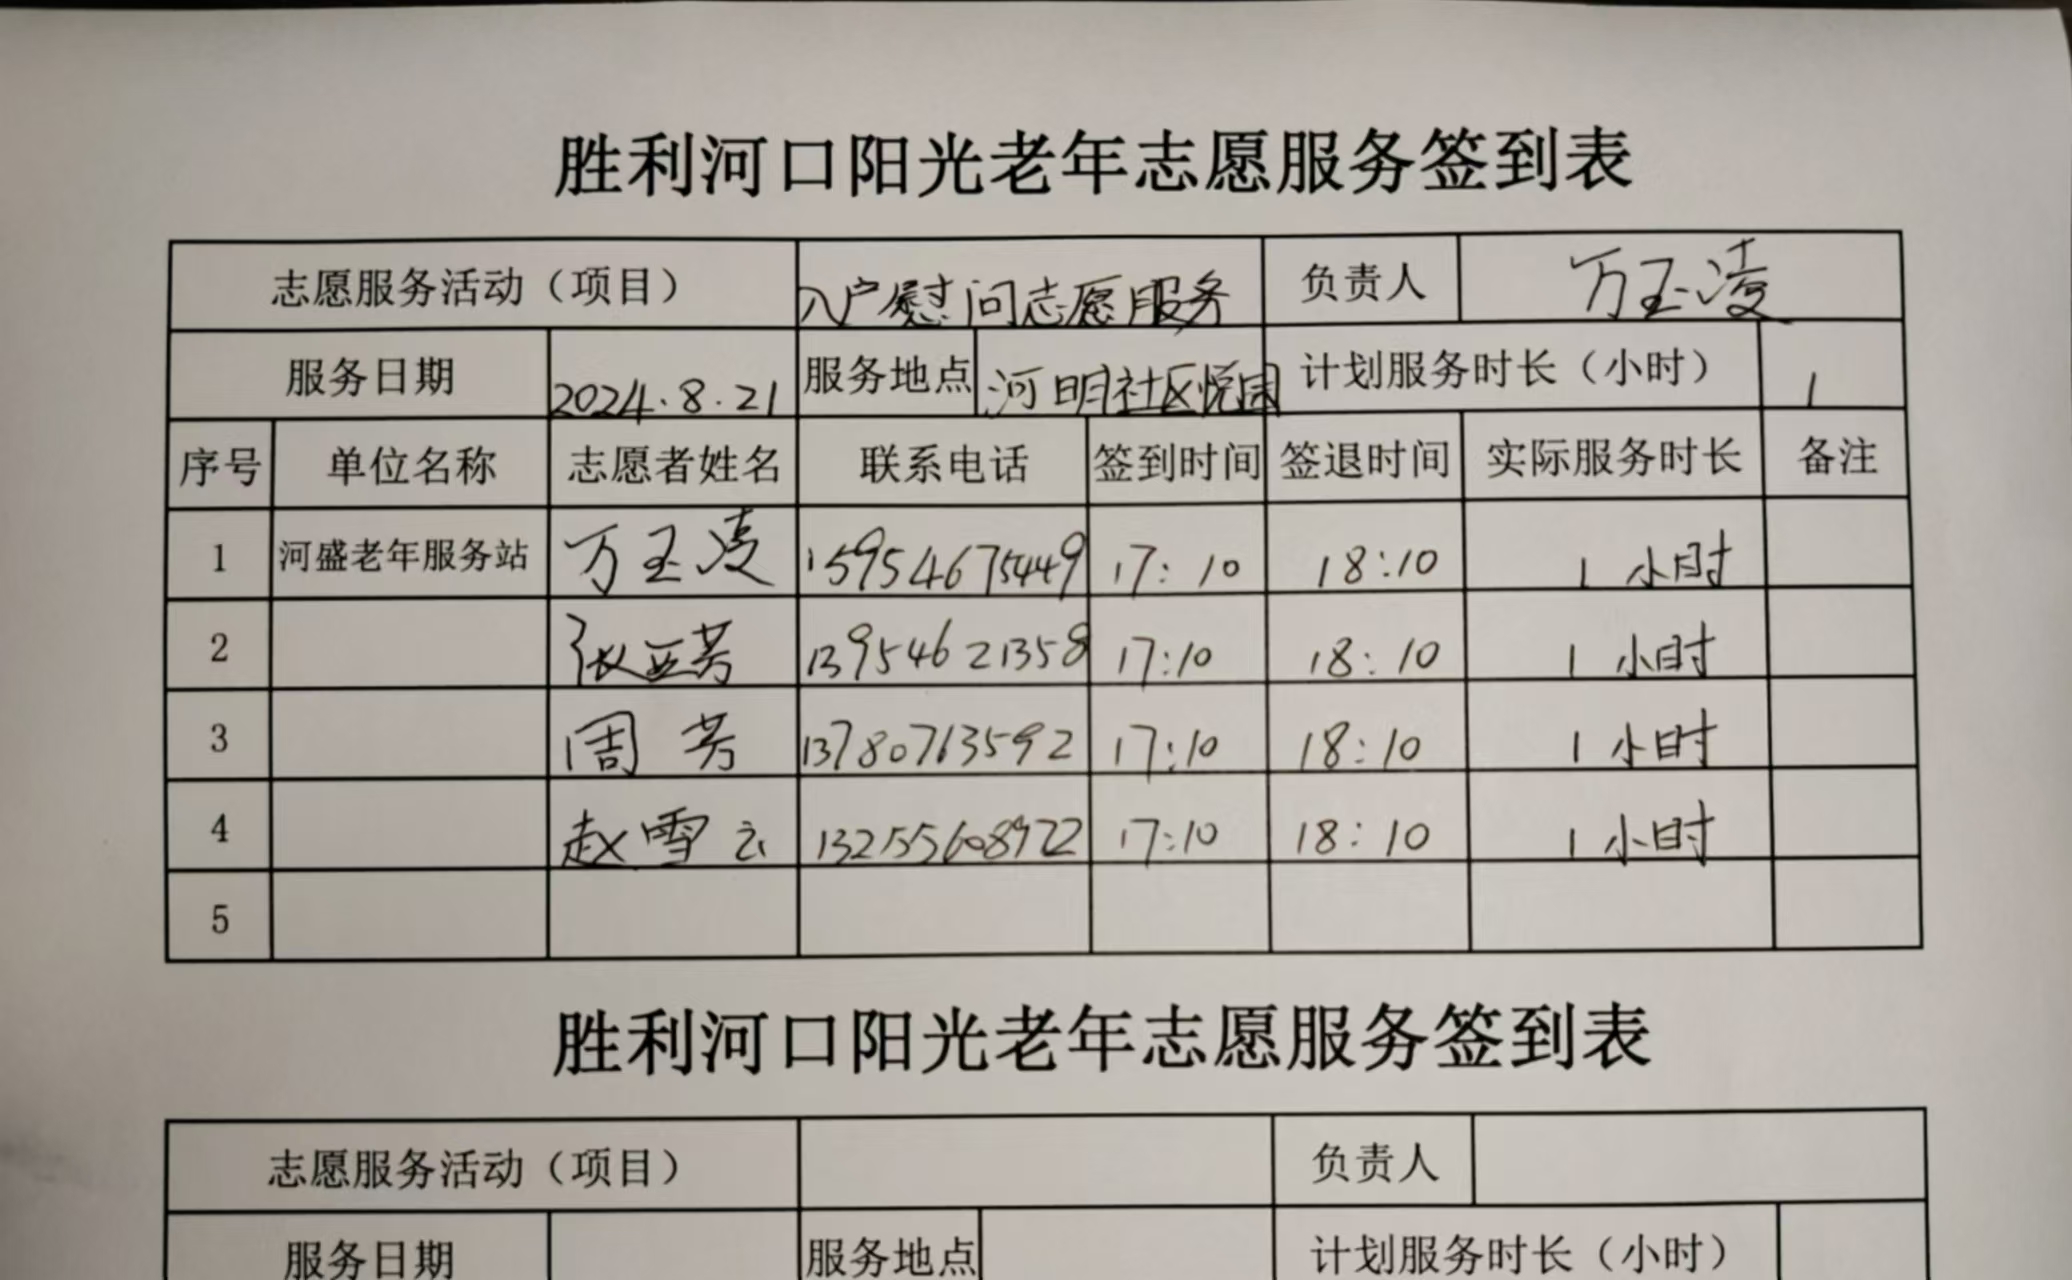 胜利河口阳光老年志愿服务签到表
志愿服务活动（项目） 入户慰问志愿服务 负责人 万玉凌
服务日期 2024.8.21 服务地点 河明社区悦园 计划服务时长（小时） 1
序号 单位名称 志愿者姓名 联系电话 签到时间 签退时间 实际服务时长 备注
1 河盛老年服务站 万玉凌 15954675449 17:10 18:10 1小时
2 张亚芳 13954621358 17:10 18:10 1小时
3 周芳 13780763592 17:10 18:10 1小时
4 赵雪云 17:10 18:10 1小时
5
胜利河口阳光老年志愿服务签到表
志愿服务活动（项目） 负责人
服务日期 服务地点 计划服务时长（小时）